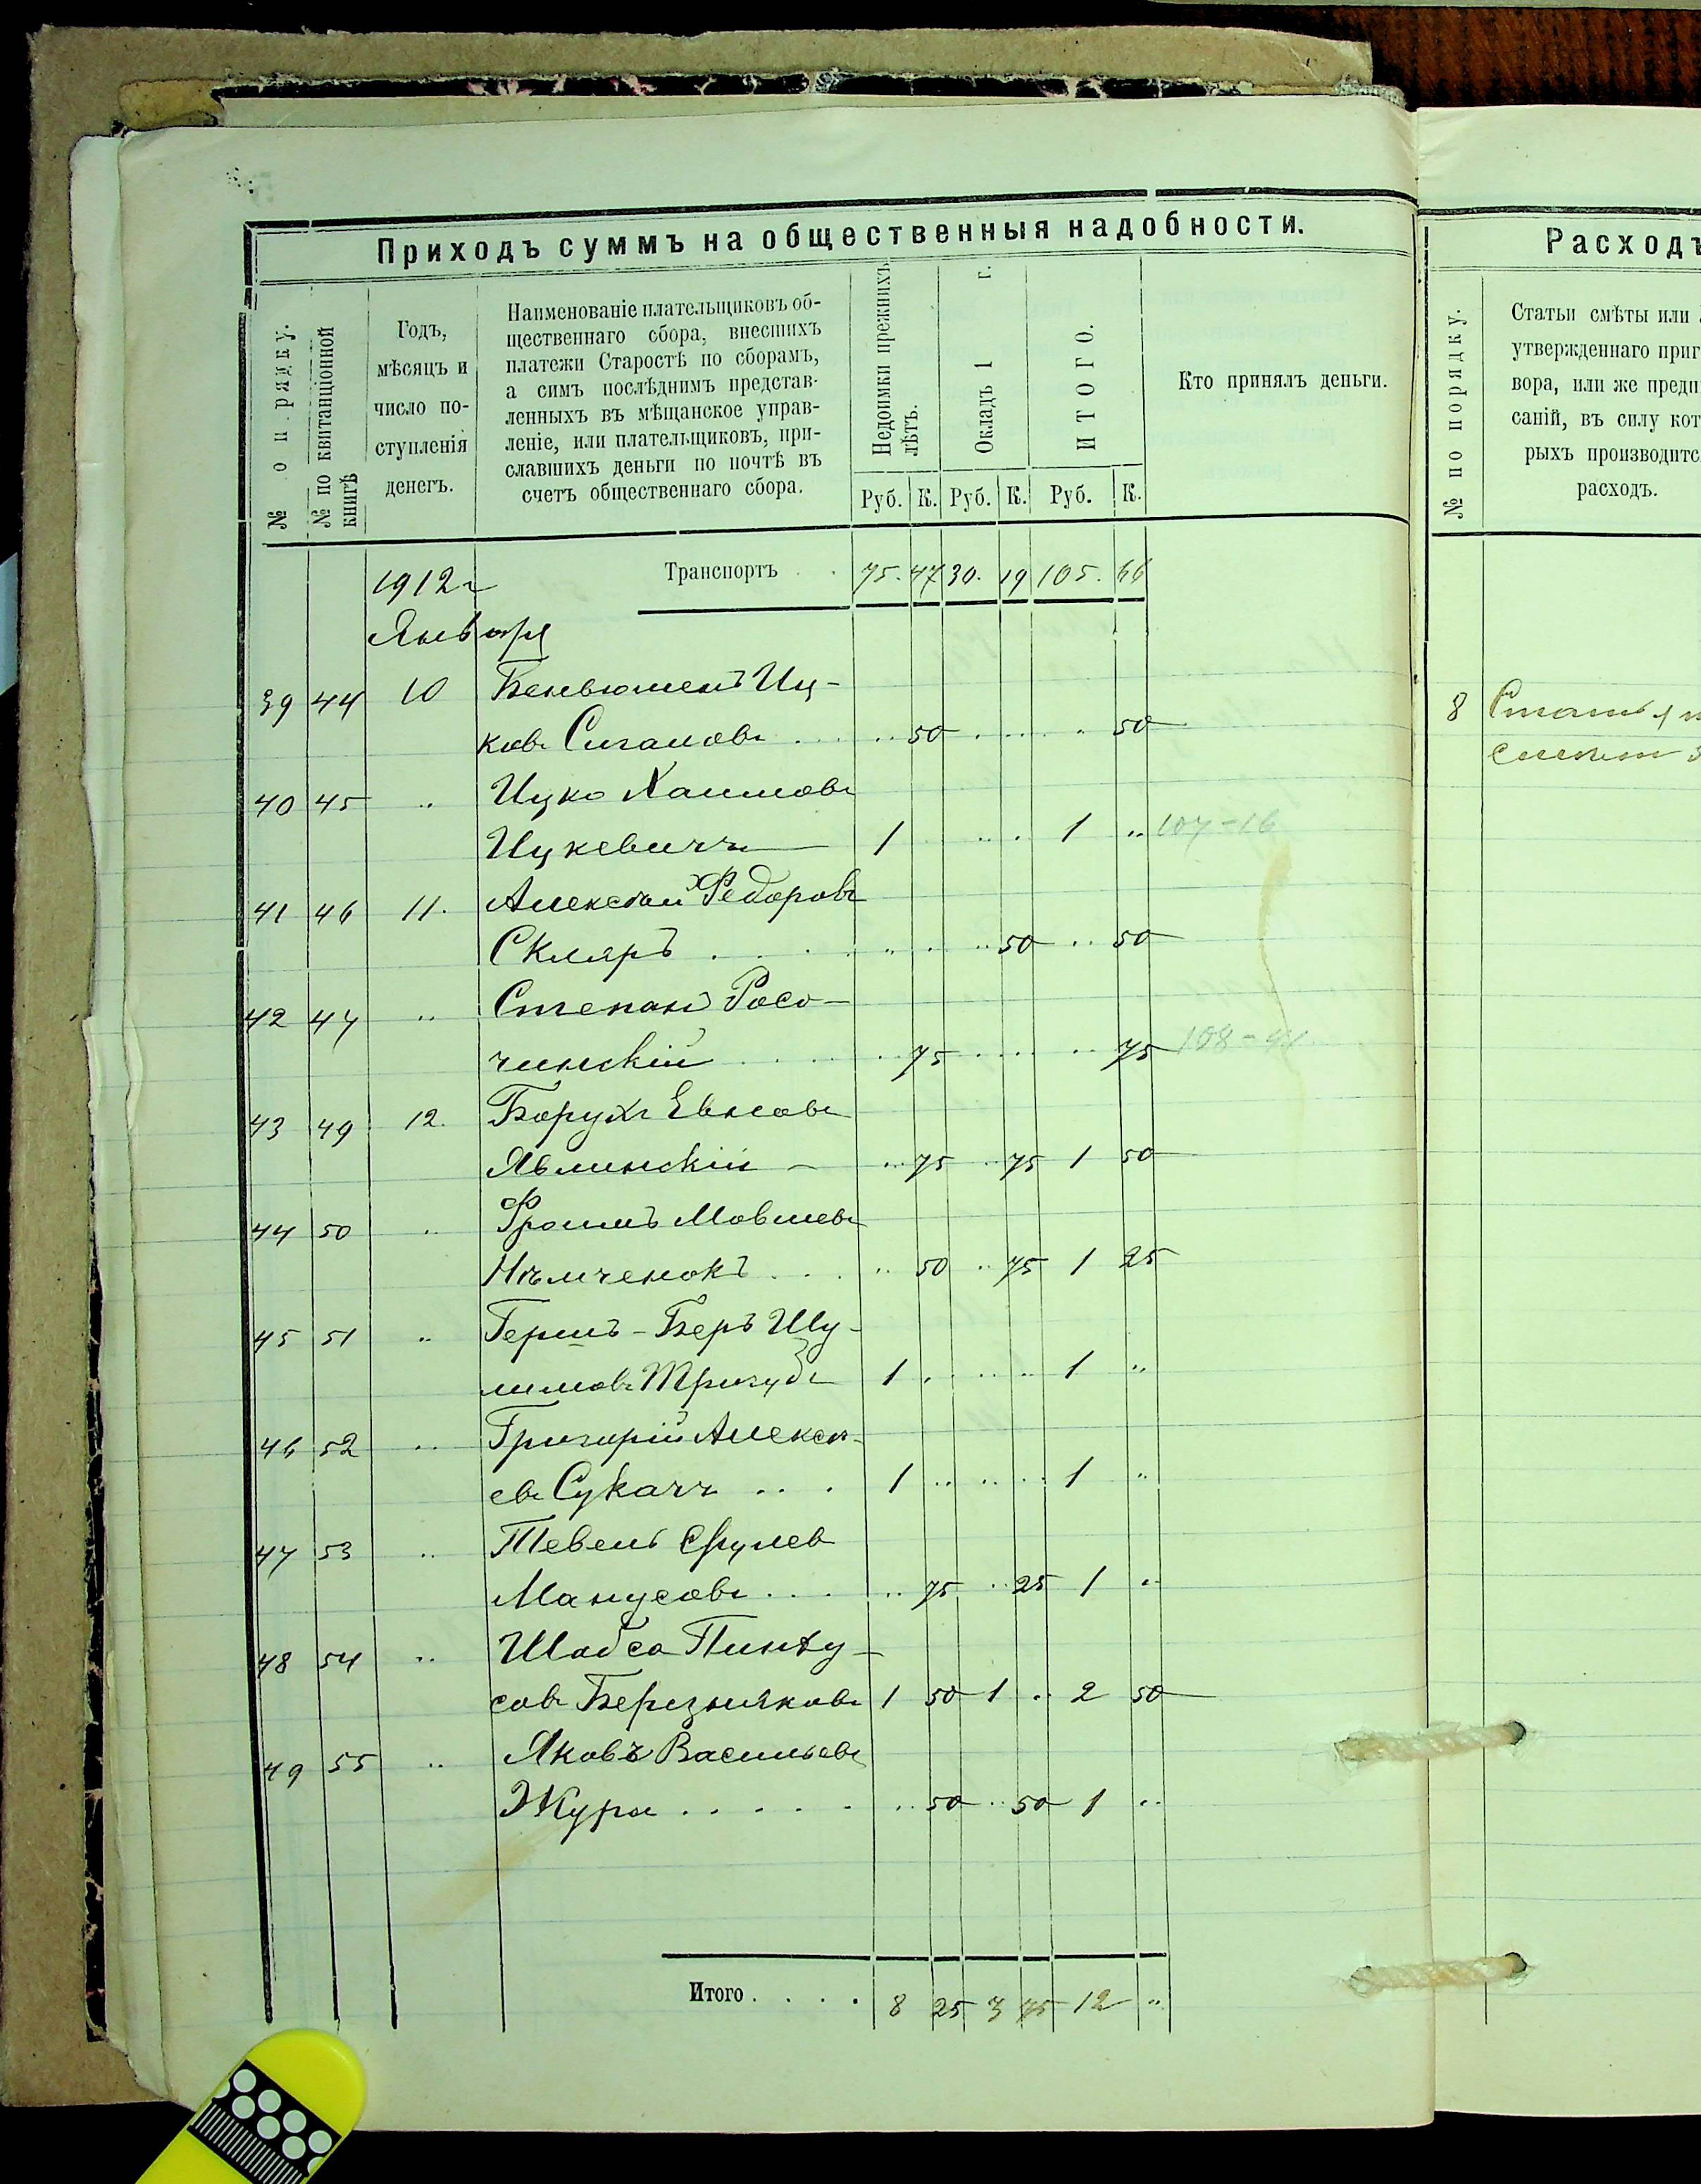 Приходъ суммъ на общественныя надобности.
№ по рядку.
№ по квитанціонной книгѣ
Годъ,
мѣсяцъ и
число по-
ступленія
денегъ.
Наименованіе плательщиковъ об-
щественнаго сбора, внесшихъ
платежи Старостѣ по сборамъ,
а симъ послѣднимъ представ-
ленныхъ въ мѣщанское управ-
леніе, или плательщиковъ, при-
славшихъ деньги по почтѣ въ
счетъ общественнаго сбора.
Недоимки прежнихъ
лѣтъ.
Окладъ 1 г.
ИТОГО.
Кто принялъ деньги.
Руб. К. Руб. К. Руб. К.
1912 г Транспортъ . . 75. 47 30. 19 105. 66
Января
39 44 10 Беньюменъ Иц-
ковъ Сигаловъ .. 50 .. 50
40 45 .. Ицко Хаимовъ
Ицкевичъ 1 .. 1 .. 107-16
41 46 11. Алексѣй Федоровъ
Скляръ .. 50 .. 50
42 47 .. Степанъ Росо-
чинскій .. 75 .. 75 108-41
43 49 12. Борухъ Евновъ
Явлинскій .. 75 .. 75 1 50
44 50 .. Фроимъ Мовшевъ
Нѣмченокъ .. 50 .. 75 1 25
45 51 .. Гершъ-Беръ Шу-
лимовъ Тригубъ 1 .. 1 ..
46 52 .. Григорій Алексѣ-
евъ Сукачъ 1 .. 1 ..
47 53 .. Тевель Срулев
Манусовъ .. 75 .. 25 1 ..
48 54 .. Шабса Пинху-
совъ Березняковъ 1 50 1 .. 2 50
49 55 .. Яковъ Васильевъ
Жура .. 50 .. 50 1 ..
Итого . . . . 8 25 3 75 12 ..
Расходъ
№ по порядку.
Статьи смѣты или
утвержденнаго приг
вора, или же предп
саній, въ силу кот
рыхъ производитс
расходъ.
8